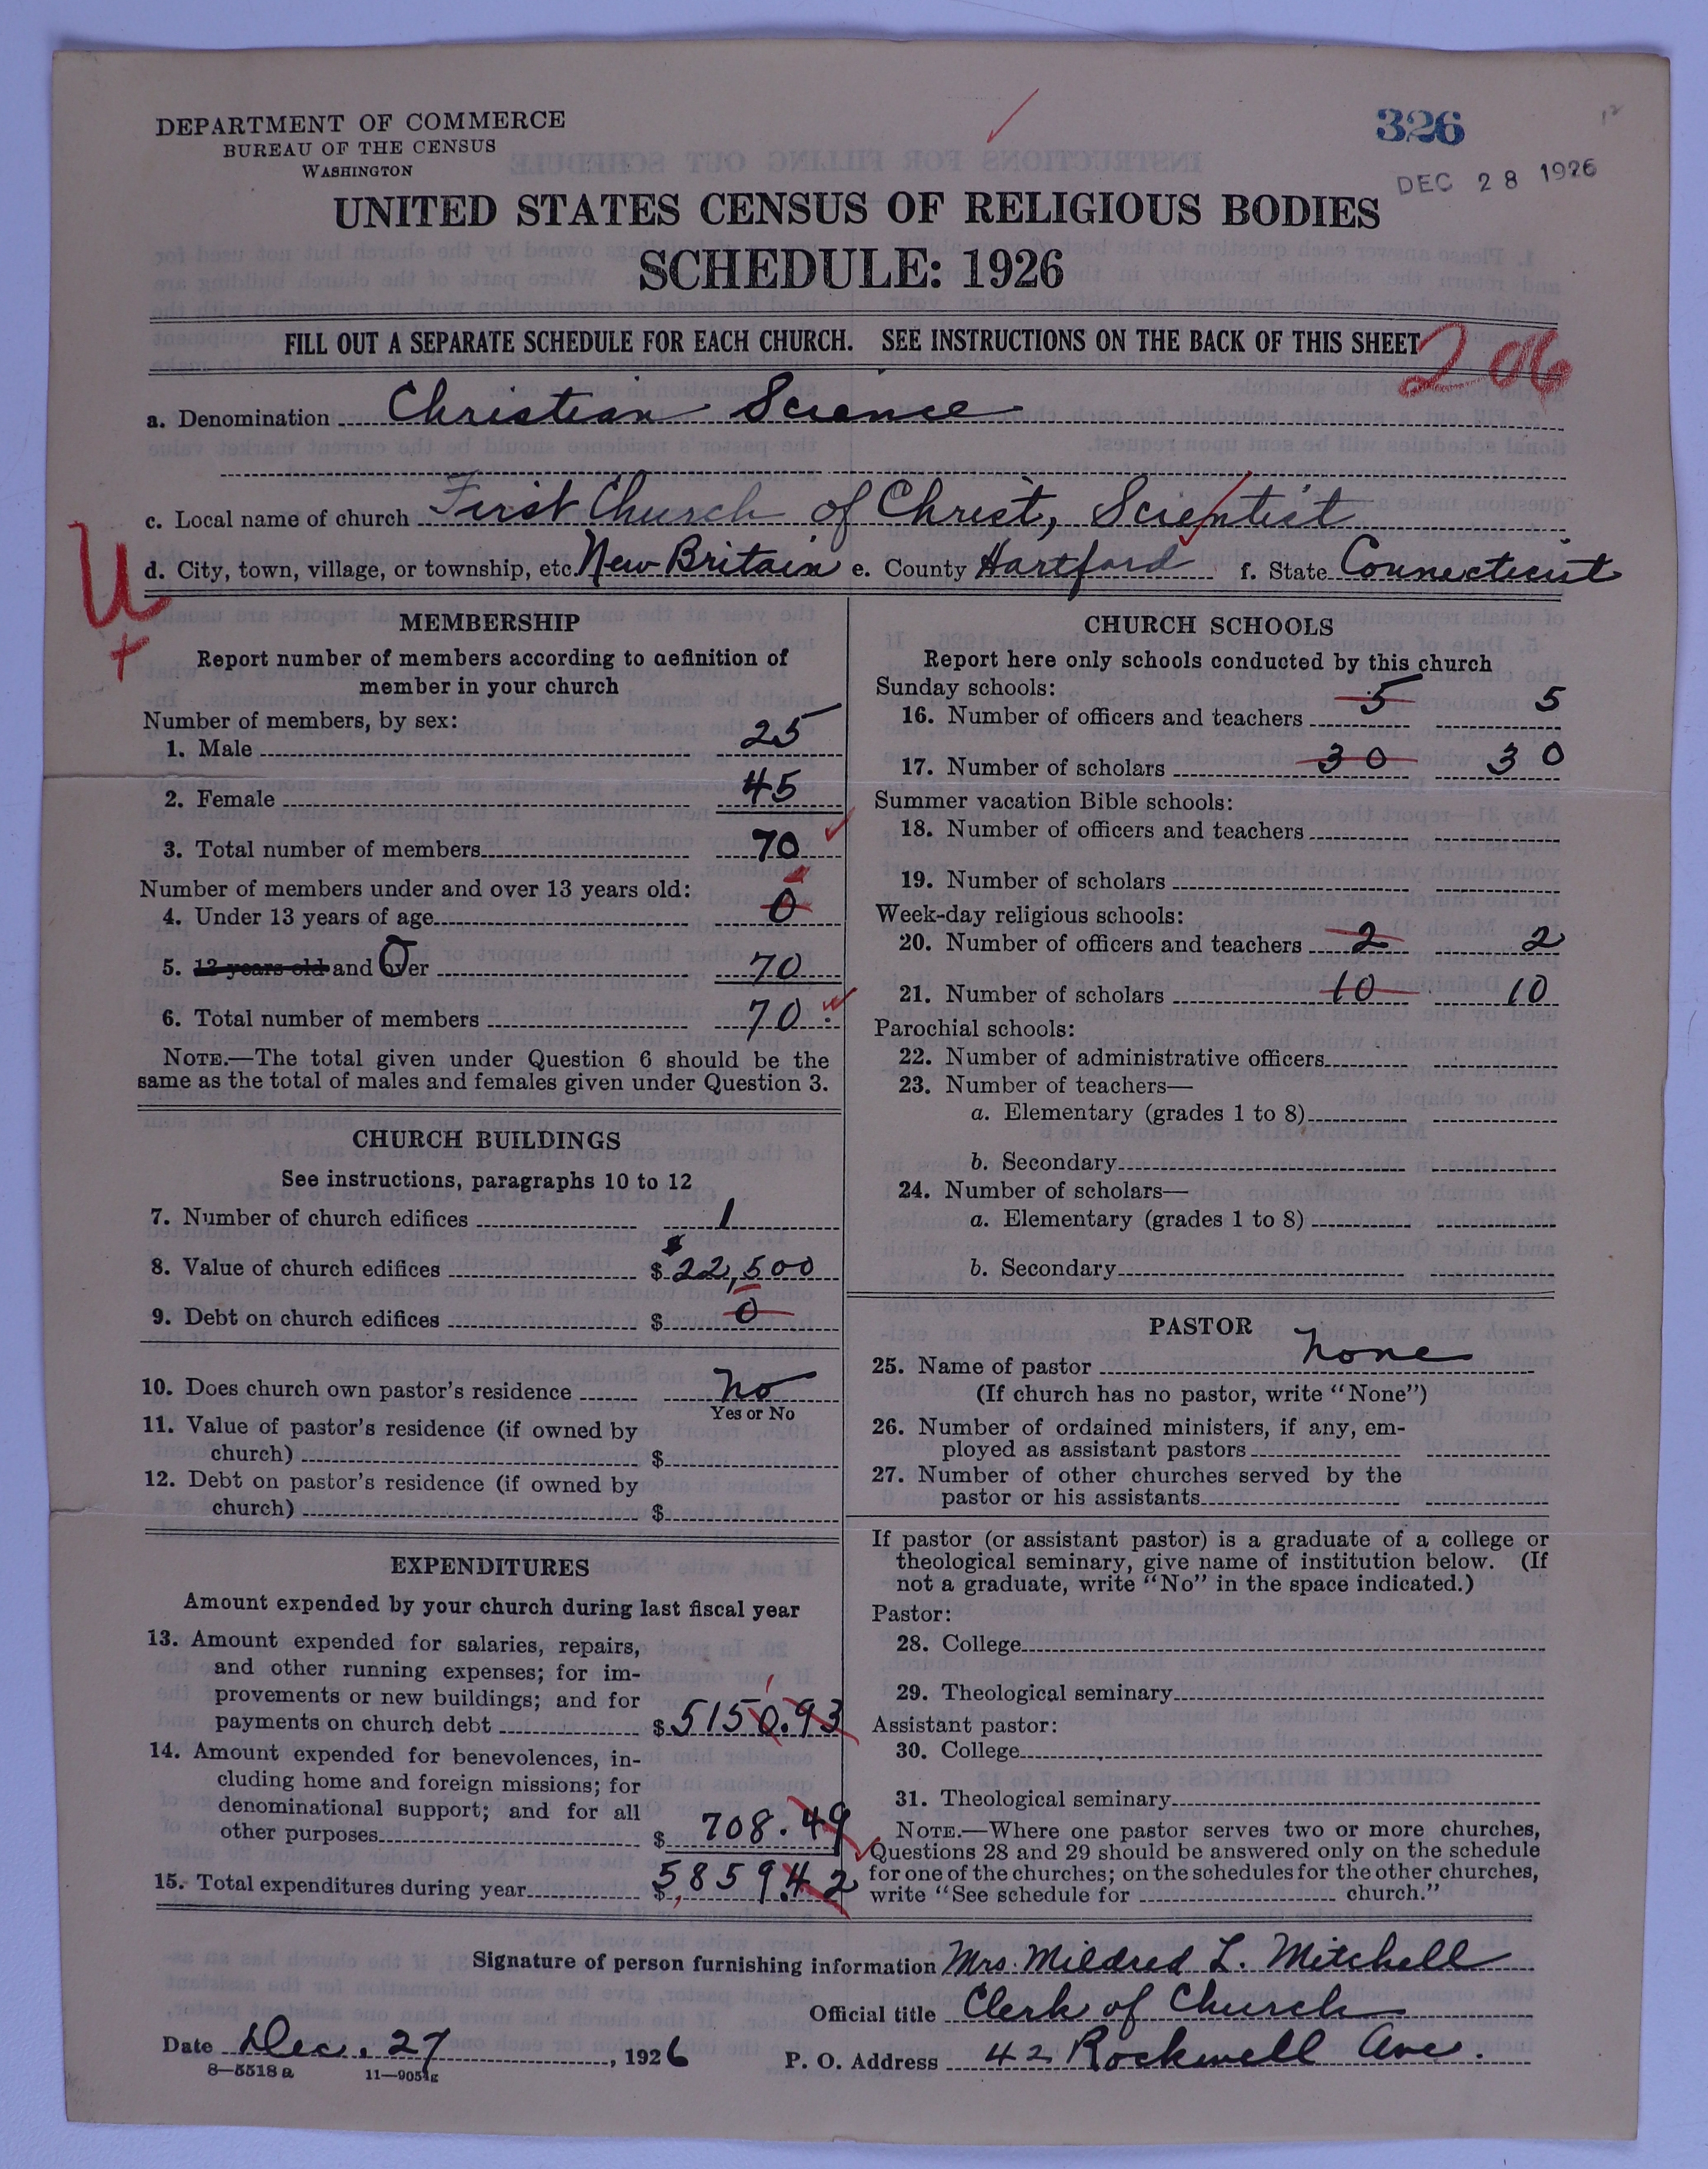 DEPARTMENT OF COMMERCE
BUREAU OF THE CENSUS
WASHINGTON
326
DEC 28 1926
UNITED STATES CENSUS OF RELIGIOUS BODIES
SCHEDULE: 1926
FILL OUT A SEPARATE SCHEDULE FOR EACH CHURCH. SEE INSTRUCTIONS ON THE BACK OF THIS SHEET
206
a. Denomination Christian Science
c. Local name of church First Church of Christ, Scientist
d. City, town, village, or township, etc. New Britain e. County Hartford f. State Connecticut
U
+
MEMBERSHIP
Report number of members according to definition of
member in your church
Number of members, by sex:
1. Male 25
2. Female 45
3. Total number of members 70
Number of members under and over 13 years old:
4. Under 13 years of age 0
5. 13 years old and Over 70
6. Total number of members 70
NOTE.—The total given under Question 6 should be the
same as the total of males and females given under Question 3.
CHURCH BUILDINGS
See instructions, paragraphs 10 to 12
7. Number of church edifices 1
8. Value of church edifices $ 22,500
9. Debt on church edifices $ 0
10. Does church own pastor's residence No
Yes or No
11. Value of pastor's residence (if owned by
church) $
12. Debt on pastor's residence (if owned by
church) $
EXPENDITURES
Amount expended by your church during last fiscal year
13. Amount expended for salaries, repairs,
and other running expenses; for im-
provements or new buildings; and for
payments on church debt $ 5150.93
1
14. Amount expended for benevolences, in-
cluding home and foreign missions; for
denominational support; and for all
other purposes $ 708.49
15. Total expenditures during year $ 5859.42
CHURCH SCHOOLS
Report here only schools conducted by this church
Sunday schools:
16. Number of officers and teachers 5 5
17. Number of scholars 30 30
Summer vacation Bible schools:
18. Number of officers and teachers
19. Number of scholars
Week-day religious schools:
20. Number of officers and teachers 2 2
21. Number of scholars 10 10
Parochial schools:
22. Number of administrative officers
23. Number of teachers—
a. Elementary (grades 1 to 8)
b. Secondary
24. Number of scholars—
a. Elementary (grades 1 to 8)
b. Secondary
PASTOR
25. Name of pastor none
(If church has no pastor, write "None")
26. Number of ordained ministers, if any, em-
ployed as assistant pastors
27. Number of other churches served by the
pastor or his assistants
If pastor (or assistant pastor) is a graduate of a college or
theological seminary, give name of institution below. (If
not a graduate, write "No" in the space indicated.)
Pastor:
28. College
29. Theological seminary
Assistant pastor:
30. College
31. Theological seminary
NOTE.—Where one pastor serves two or more churches,
Questions 28 and 29 should be answered only on the schedule
for one of the churches; on the schedules for the other churches,
write "See schedule for church."
Signature of person furnishing information Mrs. Mildred L. Mitchell
Official title Clerk of Church
Date Dec. 27, 1926 P. O. Address 42 Rockwell Ave.
8—5518 a 11—9051g